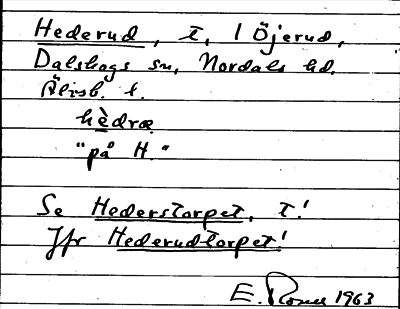 Hederud, t, 1 Öjerud,
Dalskogs sn, Nordals hd.
Älvsb. l.
hèdrœ
"på H."
Se Hederstorpet, t!
Jfr Hederudtorpet!
E. 1963